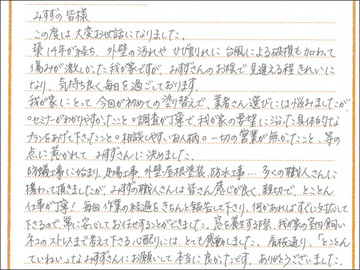 みすずの皆様
この度は大変お世話になりました。
築14年が経ち、外壁の汚れや ひび割れに 台風による破損も加わって
傷みが激しかった我が家ですが、みすずさんのお陰で見違える程 きれいに
なり、気持ち良く毎日を過ごしております。
我が家にとって 今回が初めての塗り替えで、業者さん選びには悩みましたが
○セミナーがわかりやすかったこと○調査が丁寧で我が家の要望に沿った具体的な
プランをあげて下さったこと○相談しやすいお人柄○一切の営業が無かったこと、等の
点に惹かれて みすずさんに決めました。
防蟻工事に始まり、足場工事、外壁・屋根塗装、防水工事…多くの職人さんに
携わって頂きましたが、みすずの職人さんは皆さん感じが良く、親切で、とことん
仕事が丁寧！毎日作業の経過をきちんと報告して下さり、何かあればすぐに対応して
下さるので、常に安心しておまかせすることができました。窓を養生する際、我が家の室内飼い
ネコのストレスまで考えて下さる心配りには、とても感動しました。看板通り、「とことん
ていねい」なみすずさんにお願いして本当に良かったです。ありがとうございました。